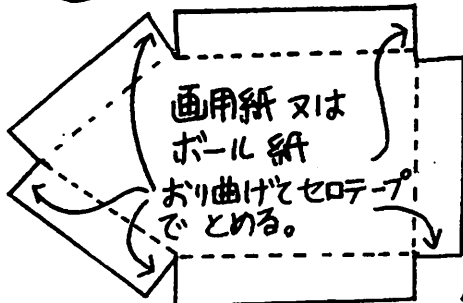 画用紙 又は
ボール 紙
おり曲げてセロテープ
で とめる。